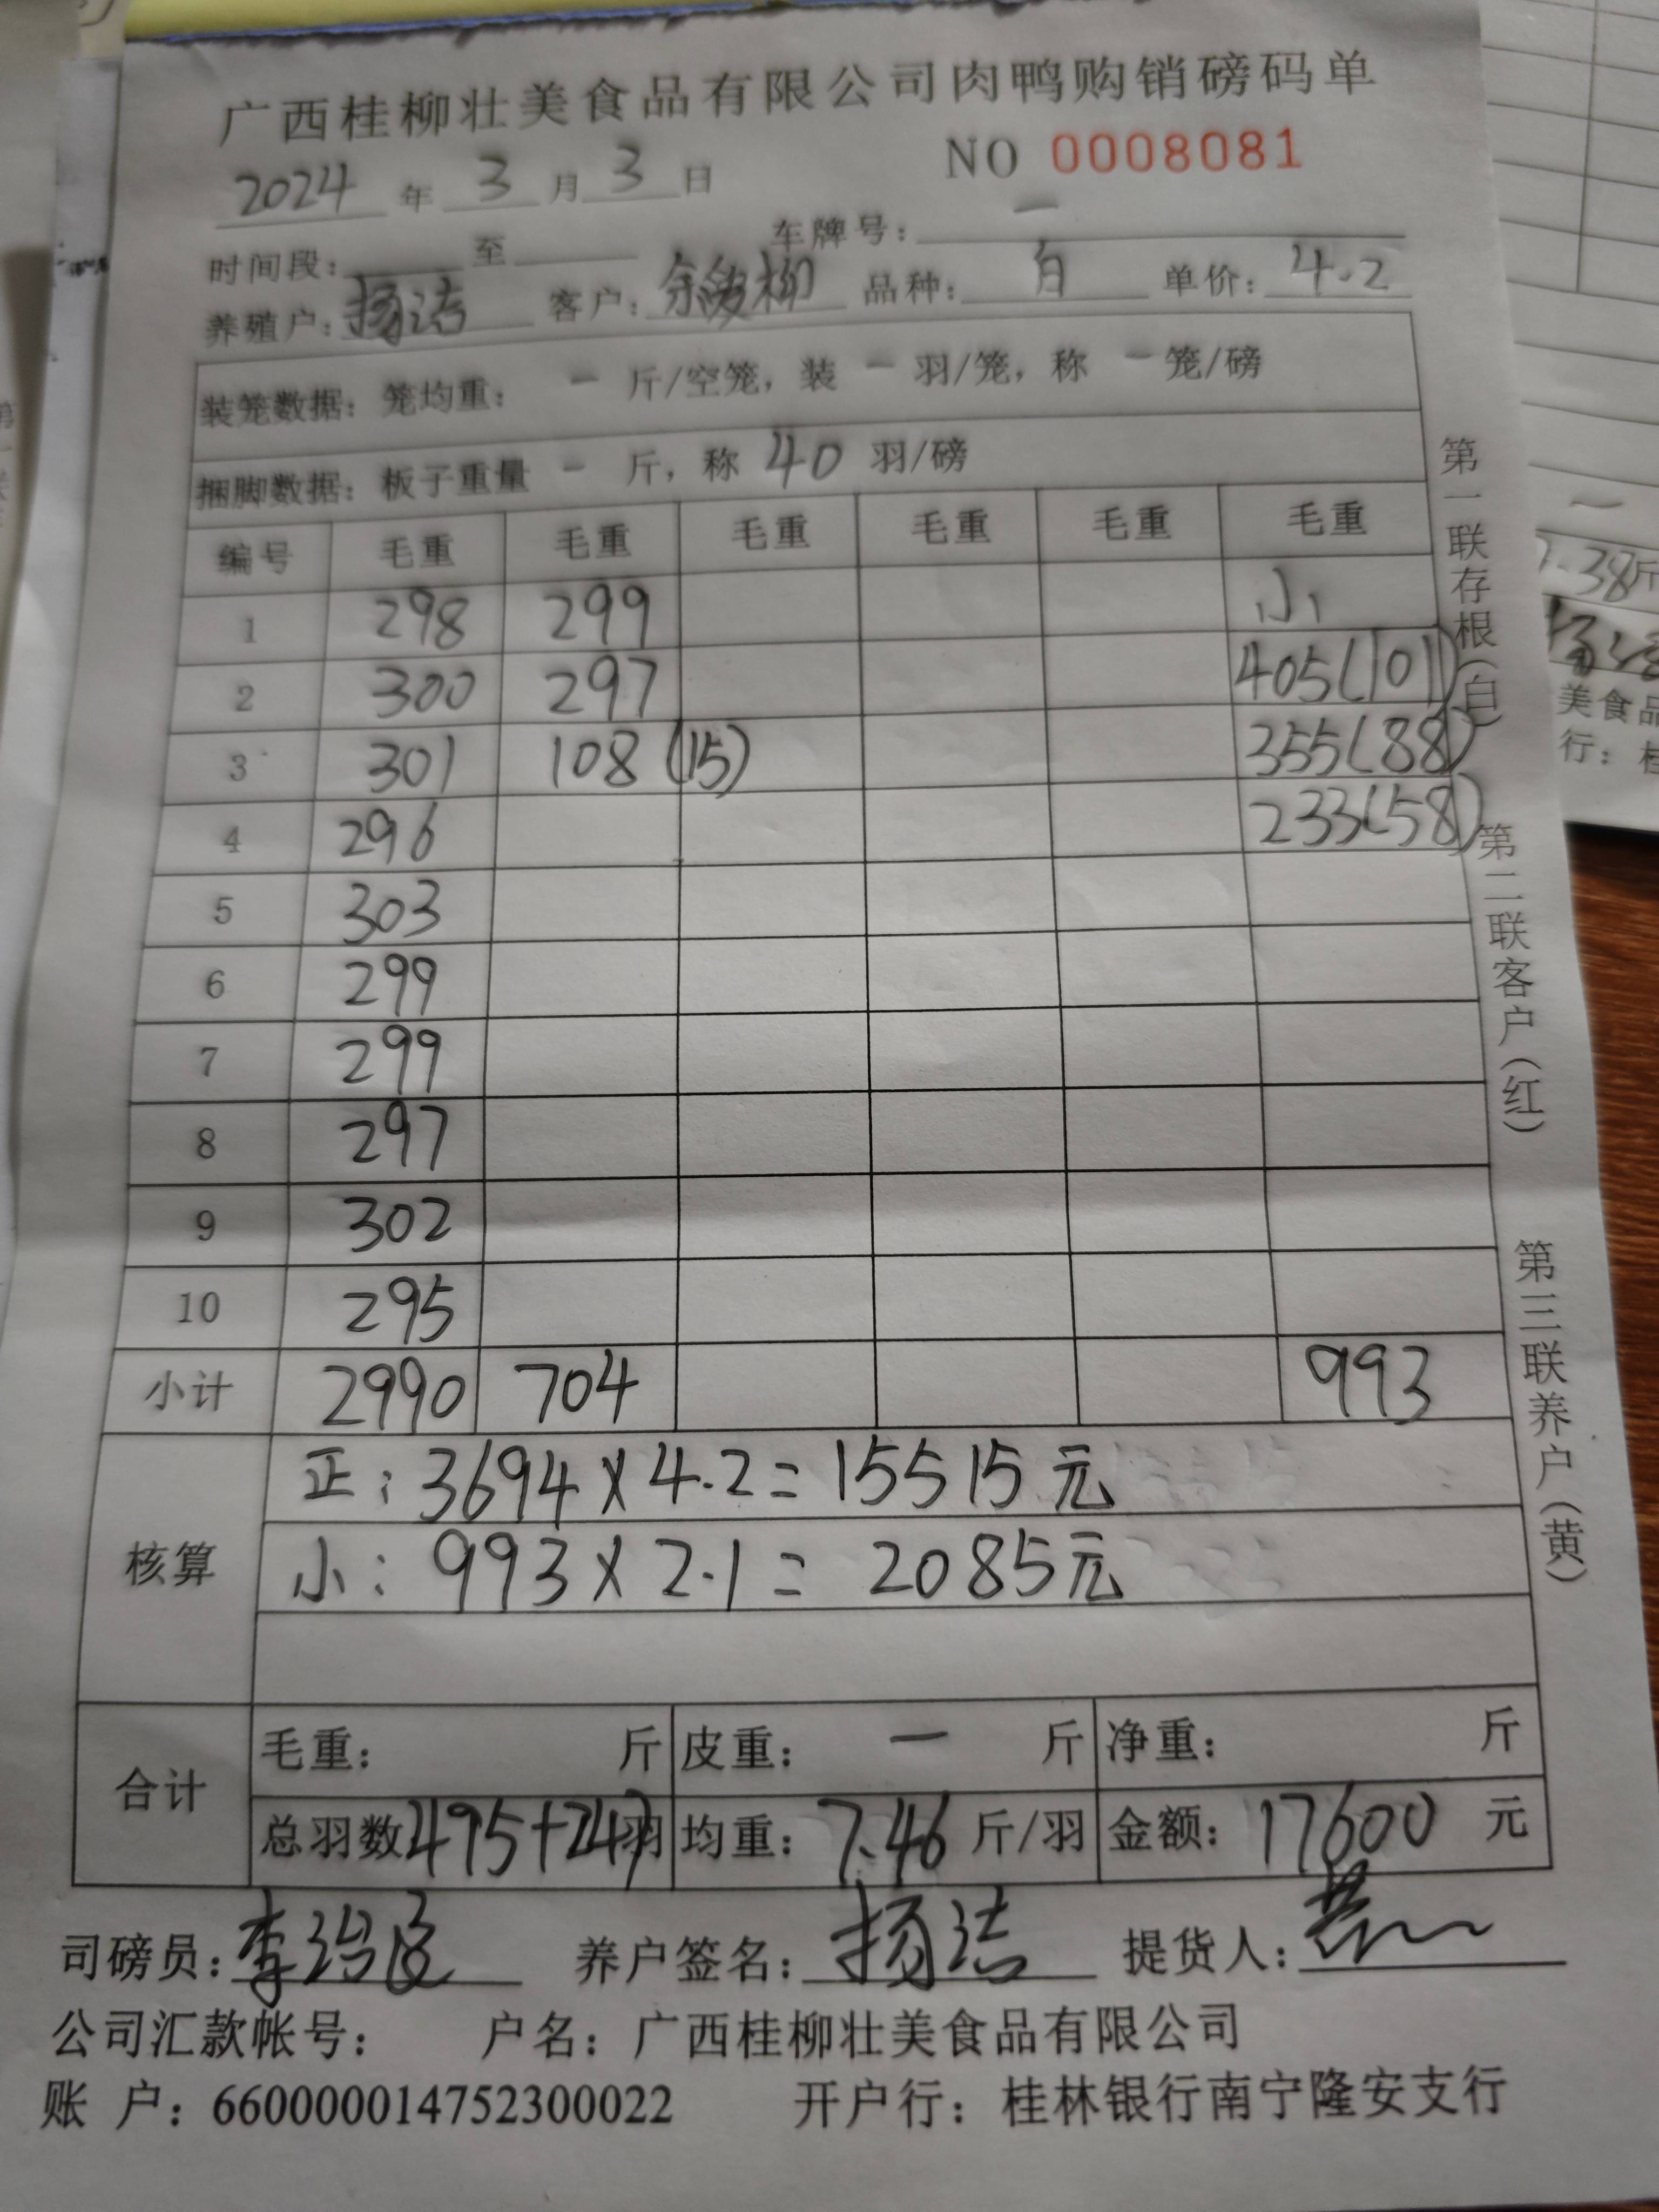 广西桂柳壮美食品有限公司肉鸭购销磅码单
2024 年 3 月 3 日 NO 0008081
时间段: 至 车牌号: 一
养殖户: 杨洁 客户: 余 柳 品种: 白 单价: 4.2
装笼数据: 笼均重: - 斤/空笼, 装 - 羽/笼, 称 - 笼/磅
捆脚数据: 板子重量 - 斤, 称 40 羽/磅
编号 毛重 毛重 毛重 毛重 毛重 毛重
1 298 299 小
2 300 297 405(101)
3 301 108(15) 355(88)
4 296 233(58)
5 303
6 299
7 299
8 297
9 302
10 295
小计 2990 704 993
核算
正: 3694×4.2=15515元
小: 993×2.1= 2085元
合计
毛重: 斤 皮重: 一 斤 净重: 斤
总羽数 495+247羽 均重: 7.46 斤/羽 金额: 17600 元
司磅员: 李 养户签名: 杨洁 提货人:
公司汇款帐号: 户名: 广西桂柳壮美食品有限公司
账 户: 660000014752300022 开户行: 桂林银行南宁隆安支行
第一联存根(白)
第二联客户(红)
第三联养户(黄)
一
7.38斤
美食品
行: 桂